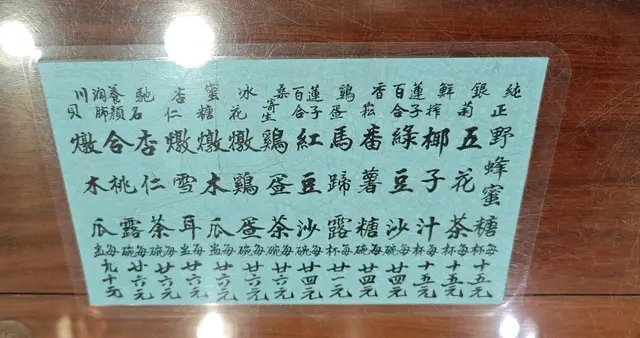 純正野蜂蜜糖每杯十五元
銀菊五花茶每杯十五元
鮮榨椰子汁每杯十五元
百合蓮子綠豆沙每碗廿四元
香菘番薯糖每碗廿四元
鷄蛋馬蹄露每杯廿一元
百合蓮子紅豆沙每碗廿四元
桑寄生鷄蛋茶每碗廿六元
冰花燉鷄蛋每碗廿六元
蜜糖燉木瓜每盅廿六元
杏仁燉雪耳每盅廿六元
馳名杏仁茶每碗廿六元
養顏合桃露每碗廿六元
川貝燉木瓜每盅九十元